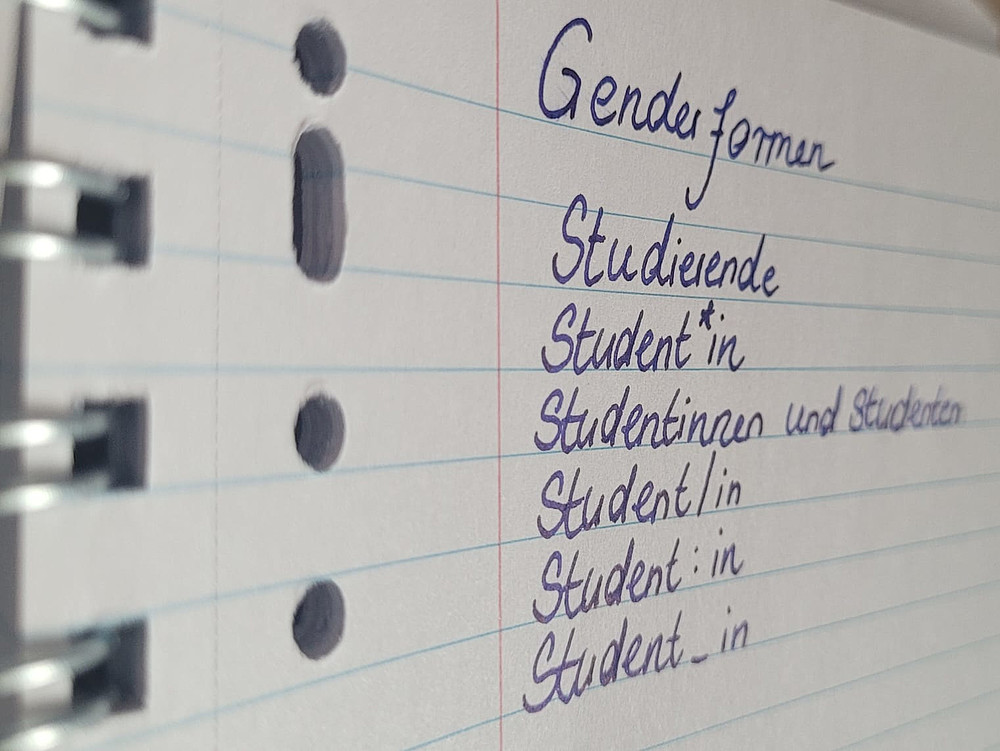 Genderformen
Studierende
Student*in
Studentinnen und Studenten
Student/in
Student:in
Student_in